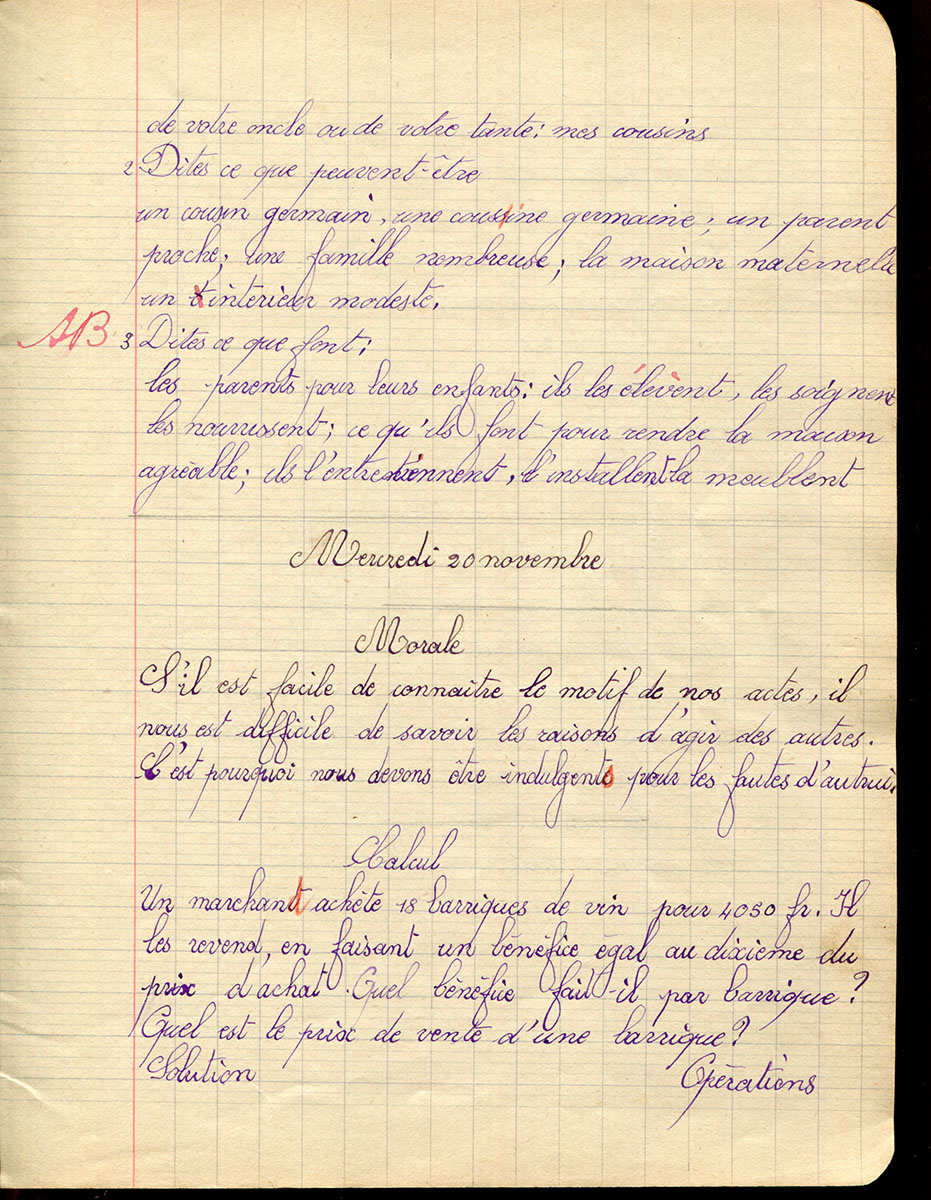 de votre oncle ou de votre tante: mes cousins
2 Dites ce que peuvent-être
un cousin germain, une coussine germaine; un parent
proche; une famille nombreuse; la maison maternelle
un intérieur modeste.
AB 3 Dites ce que font:
les parents pour leurs enfants: ils les élèvent, les soignent
les nourrissent; ce qu'ils font pour rendre la maison
agréable; ils l'entretiennent, l'installent la meublent
Mercredi 20 novembre
Morale
S'il est facile de connaitre le motif de nos actes, il
nous est difficile de savoir les raisons d'agir des autres.
C'est pourquoi nous devons être indulgents pour les fautes d'autrui.
Calcul
Un marchand achète 18 barriques de vin pour 4050 fr. Il
les revend, en faisant un bénéfice égal au dixieme du
prix d'achat. Quel bénéfice fait-il par barrique?
Quel est le prix de vente d'une barrique?
Solution Opérations